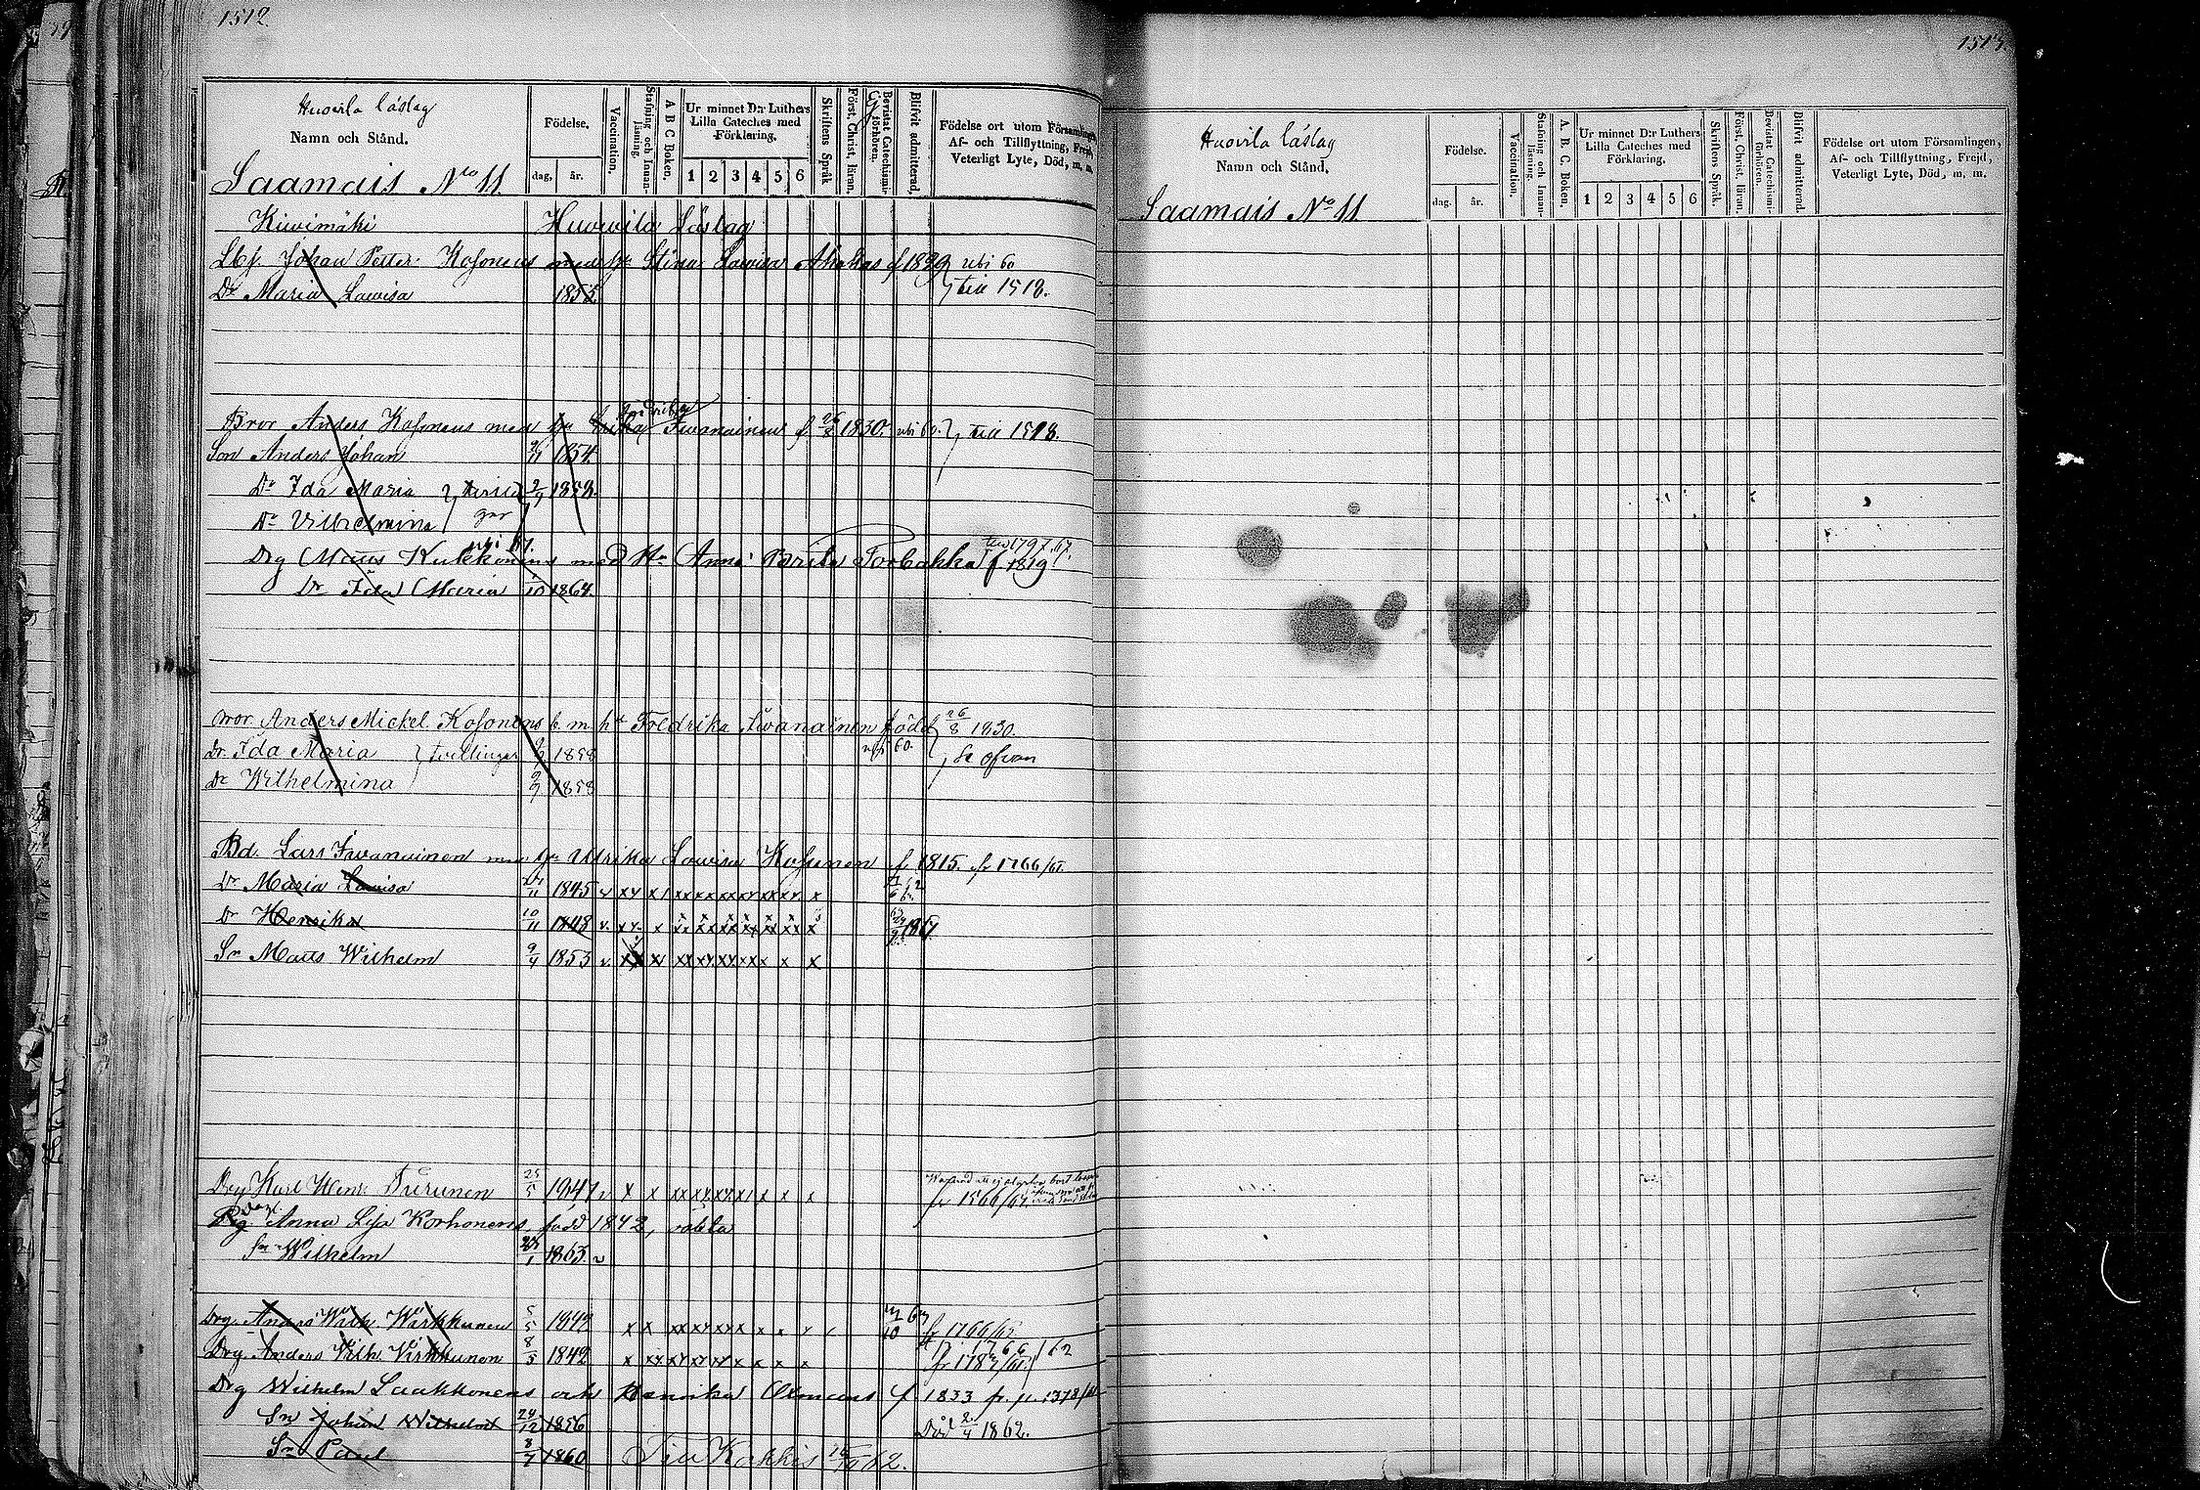 1512.
Huovila läslag
Namn och Stånd.
Födelse.
dag, år.
Vaccination.
Stafning och Innanläsning.
A B C Boken.
Ur minnet D:r Luthers Lilla Cateches med Förklaring.
1 2 3 4 5 6
Skriftens Språk
Först. Christ. läran.
Bevistat Catechismiförhören.
Blifvit admitterad.
Födelse ort utom Församlingen, Af- och Tillflyttning, Frejd, Veterligt Lyte, Död, m. m.
Saamais No 11
Kiwimäki Huovila Läslag
Lbf. Johan Petter Kosonens med hu Stina Lowisa Ahokas f 1839 ubi 60
Dr Maria Lowisa 1853 till 1518.
Bror Anders Kosonens med hu Fredrika Iwanainen f 26/8 1830. ubi 60. till 1518.
Son Anders Johan 1854.
Dr Ida Maria 1858.
Dr Vilhelmina
Drg Matts Kukkonens med Hu Anna Brita Torvakka f 1819
Dr Ida Maria 1864.
Bror Anders Mickel Kosonens b. m. hu Fredrika Iwanainen född 26/8 1830.
Dr Ida Maria tvillingar 1858 ubi 60. Se ofvan
Dr Wilhelmina 1858
Bd. Lars Iwanainen med hu Ulrika Lowisa Kosonen f. 1815. fr 1766/61.
Dr Maria Lowisa 1845 v
Dr Henrika 10/11 1848 v.
Sn Matts Wilhelm 9/4 1853 v.
Drg Karl Henr. Turunen 25/5 1847 v fr 1566/67.
Anna Lisa Korhonens, född 1842,
Sn Wilhelm 1863. v
Drg. Anders Wilh. Wirkkunen 5/5 1842 fr 1766/65
Drg. Anders Vilh. Virkkunen 8/5 1842 1766/62
fr 1787/61.
Drg Wilhelm Laakkonens och Henrika f 1833 fr p. 1378/61
Sn Johan Wilhelm 24/12 1856 Död 2/4 1862.
Sn Paul 8/7 1860 Till Kakkis 1862.
1513.
Huovila läslag
Namn och Stånd.
Födelse.
dag. år.
Vaccination.
Stafning och Innanläsning.
A. B. C. Boken.
Ur minnet D:r Luthers Lilla Cateches med Förklaring.
1 2 3 4 5 6
Skriftens Språk.
Först. Christ. läran.
Bevistat Catechismiförhören.
Blifvit admitterad.
Födelse ort utom Församlingen, Af- och Tillflyttning, Frejd, Veterligt Lyte, Död, m. m.
Saamais No 11